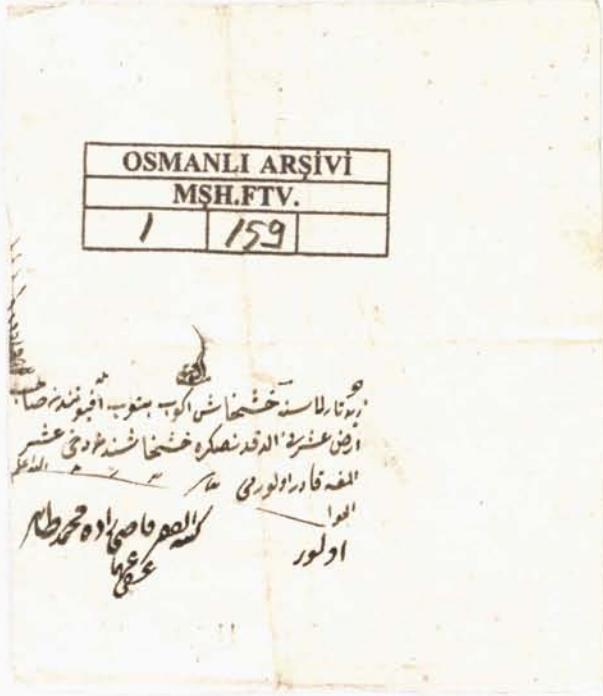 OSMANLI ARŞİVİ
MŞH.FTV.
1 159
زيد تارلاسنه خشخاش اكوب بتوب افيونندن صاحب
ارض عشرنى الدقدنصكره خشخاشندن دخى عشر
المغه قادر اولورمى
الله اعلم
الجواب
اولور
كتبه الفقير قاضى زاده محمد طاهر
عفى عنهما